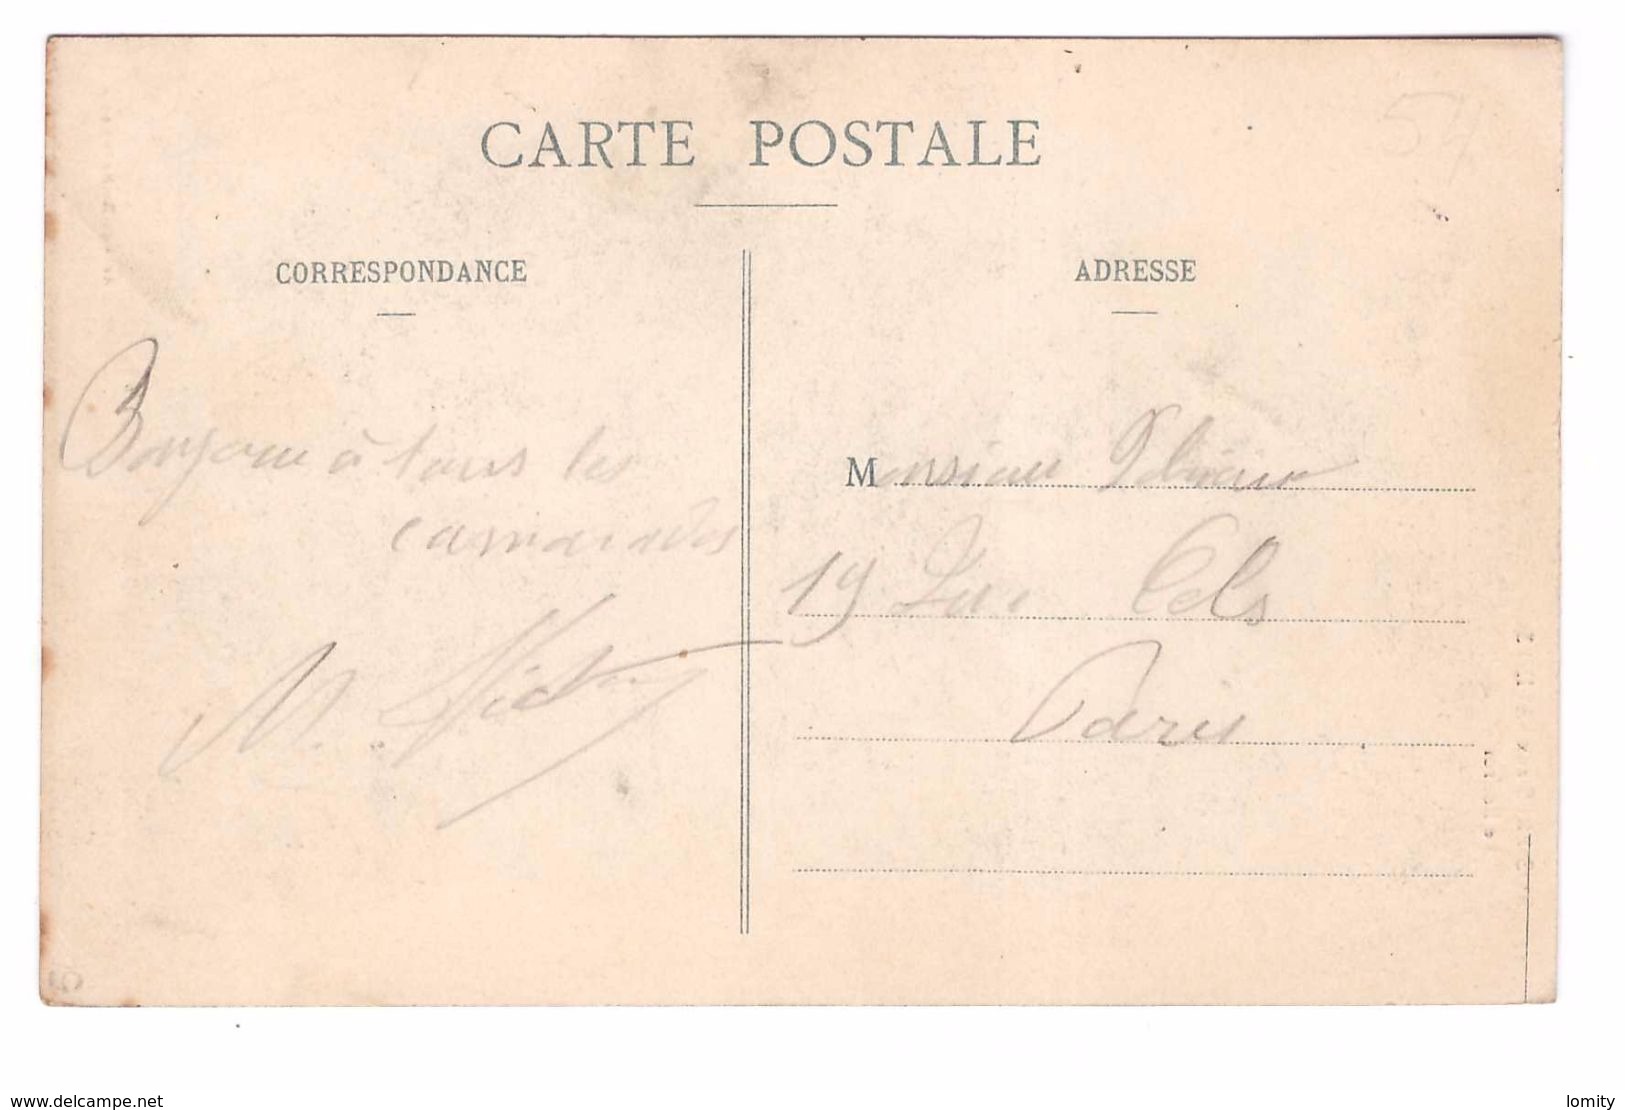 CARTE POSTALE
54
CORRESPONDANCE
Bonjour à tous les
camarades
M.
ADRESSE
Monsieur
19 Rue Cels
Paris
www.delcampe.net
lomity